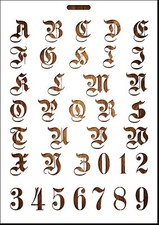 A B C D E
F G H I J
K L M N
O P Q R S
T U V W
X Y Z 0 1 2
3 4 5 6 7 8 9